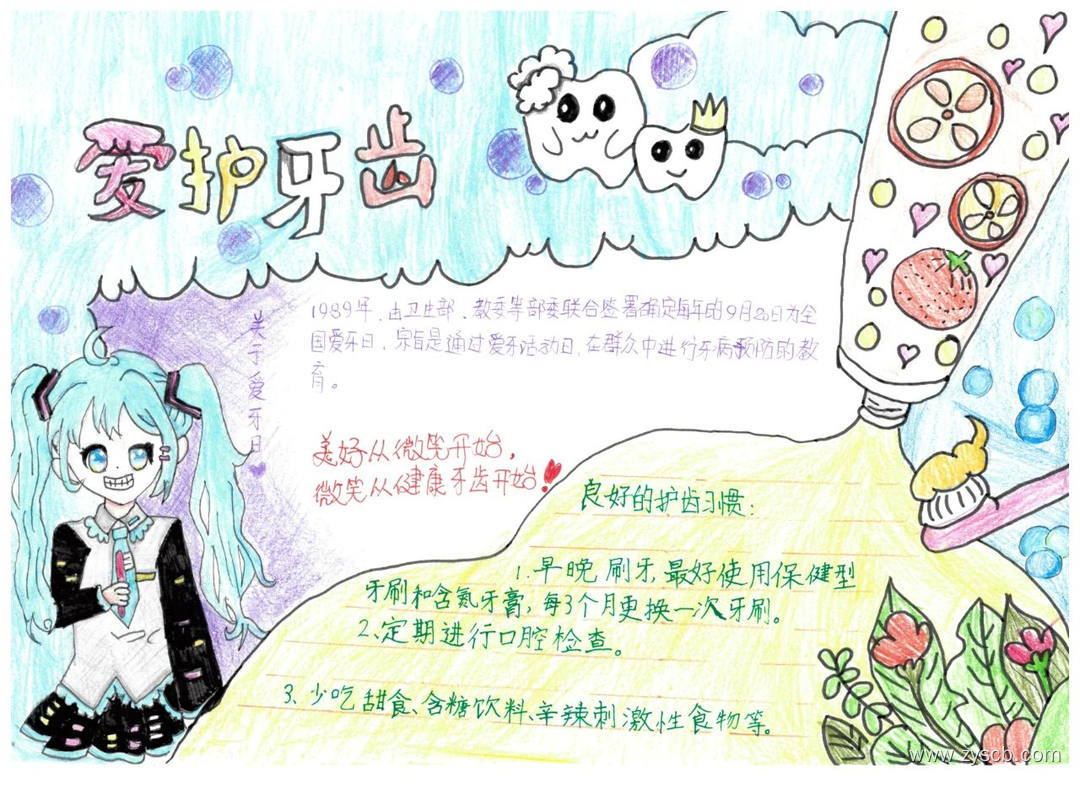 爱护牙齿
关于爱牙日
1989年，由卫生部、教委等部委联合签署确定每年的9月20日为全
国爱牙日，宗旨是通过爱牙活动日，在群众中进行牙病预防的教
育。
美好从微笑开始，
微笑从健康牙齿开始！
良好的护齿习惯：
1.早晚刷牙，最好使用保健型
牙刷和含氮牙膏，每3个月更换一次牙刷。
2、定期进行口腔检查。
3、少吃甜食、含糖饮料、辛辣刺激性食物等。
www.zyscb.com